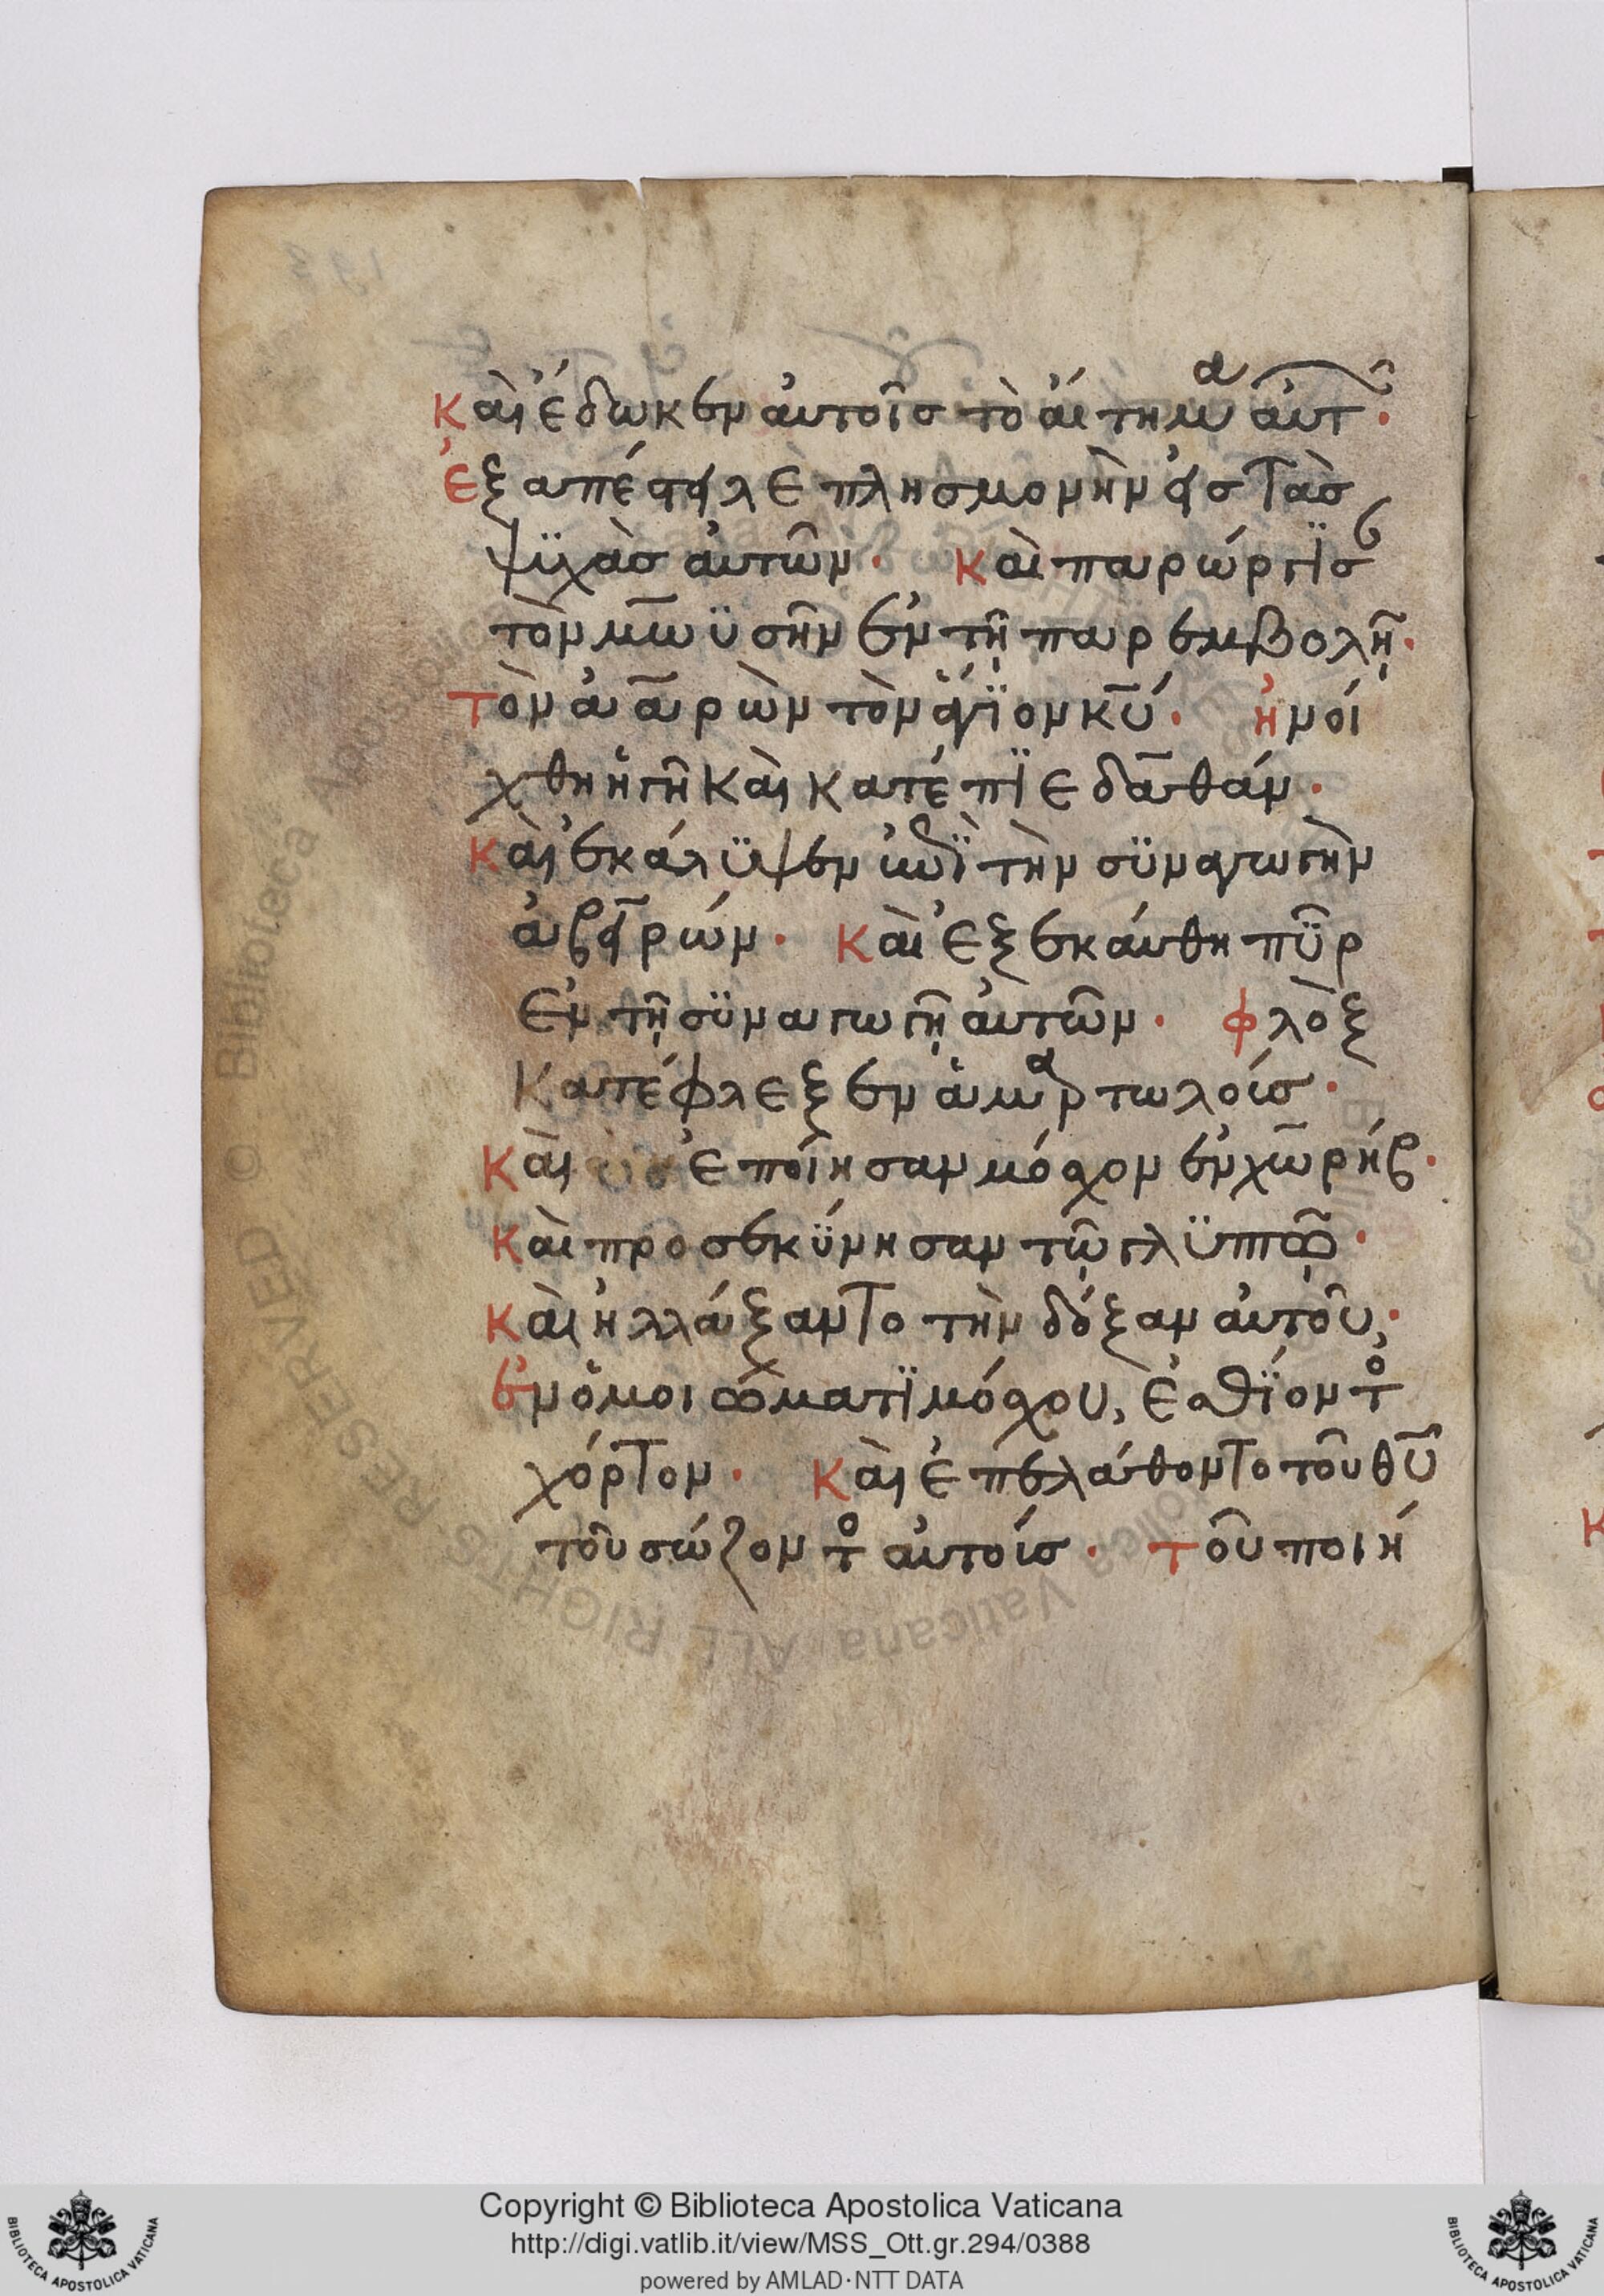 καὶ ἔδωκεν αὐτοῖσ τὸ αἴτημα αὐτ͂·
ἐξαπέστειλε πλησμονὴν εἰσ τὰσ
ψϋχὰσ αὐτῶν· καὶ παρώργϊσε
τὸν μωϋσῆν ἐν τῇ παρεμβολῇ·
τὸν ἀαρὼν τὸν ἅγϊον κ̅υ̅· ἠνοί
χθη ἡ γῆ καὶ κατέπϊε δαθάν·
καὶ ἐκάλϋψεν ἐπῒ τὴν σϋναγωγὴν
ἀβειρών· καὶ ἐξεκάυθη πῦρ
ἐν τῇ σϋναγωγῇ αὐτῶν· φλὸξ
κατέφλεξεν ἁμαρτωλούσ·
καὶ ἐποίησαν μόσχον ἐν χωρήβ·
καὶ προσεκύνησαν τῷ γλϋπτῷ·
καὶ ἠλλάξαντο τὴν δόξαν αὐτοῦ,·
ἐν ὁμοιώματϊ μόσχου, ἐσθΐοντο
χόρτον· καὶ ἐπελάθοντο τοῦ θ̅υ̅
τοῦ σώζοντο αὐτούσ· τοῦ ποιή
Copyright © Biblioteca Apostolica Vaticana
http://digi.vatlib.it/view/MSS_Ott.gr.294/0388
powered by AMLAD·NTT DATA
BIBLIOTECA APOSTOLICA VATICANA
BIBLIOTECA APOSTOLICA VATICANA